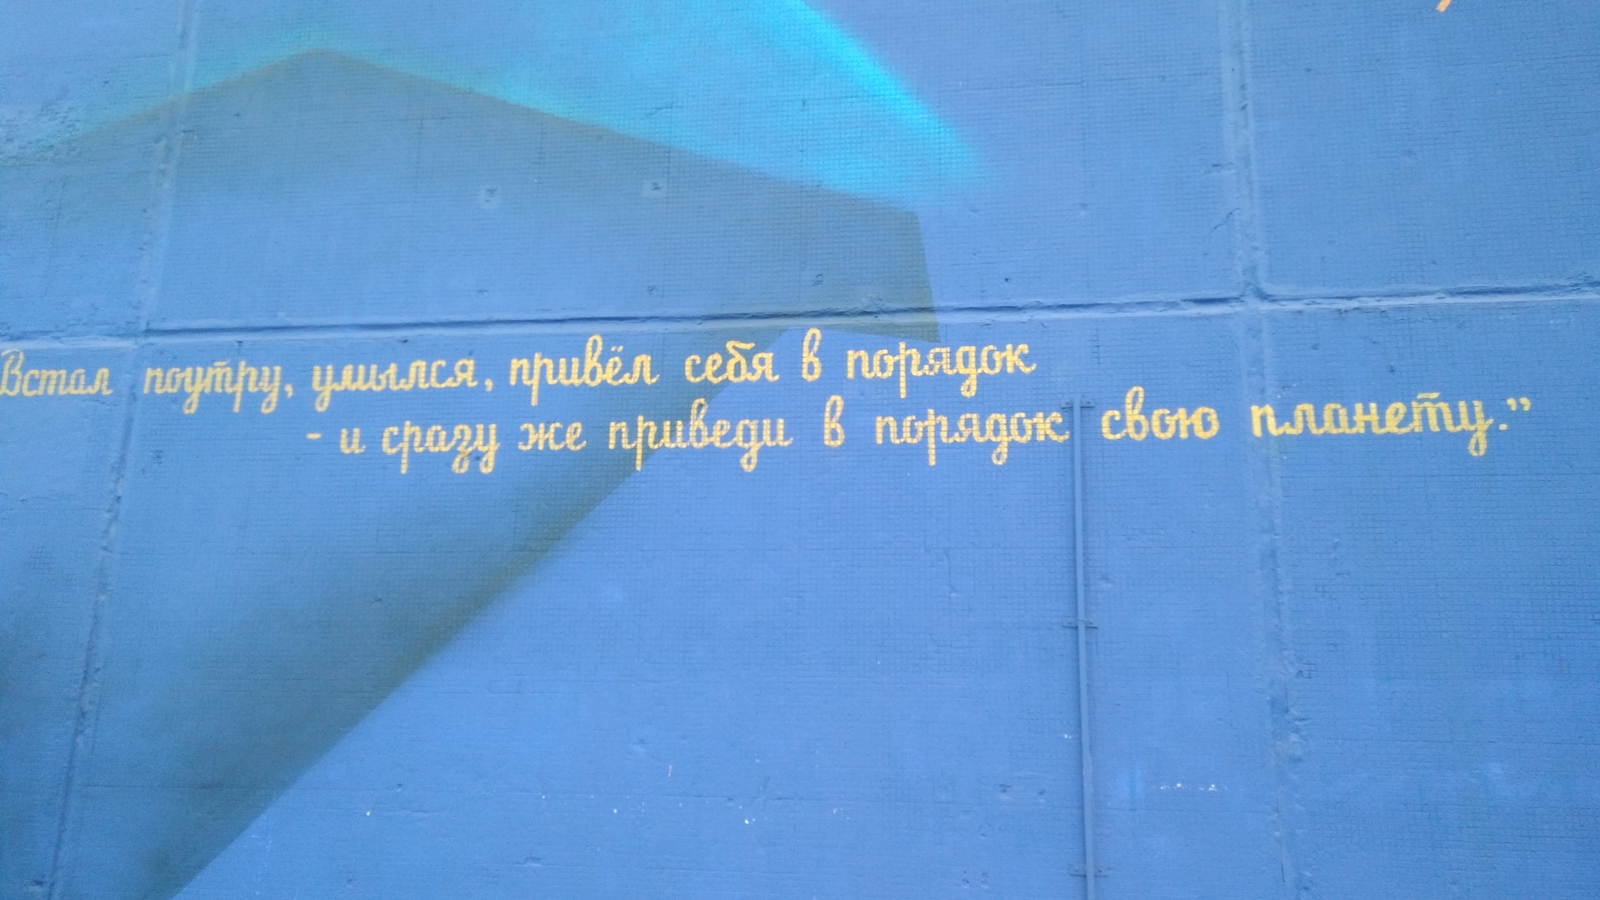 Встал поутру, умылся, привёл себя в порядок
- и сразу же приведи в порядок свою планету.”